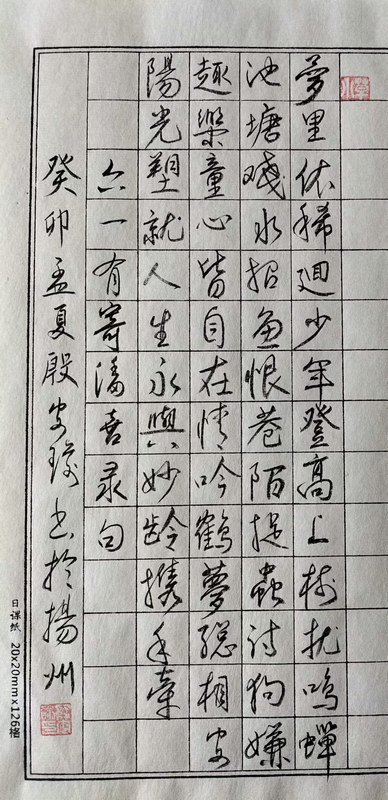 夢里依稀迴少年登高上樹扰鳴蟬
池塘戏水招魚恨巷陌捉蟲讨狗嫌
趣樂童心皆自在情吟鶴夢總相安
陽光塑就人生永與妙齡攜手牽
六一有寄潘喜录句
癸卯孟夏殷安书於揚州
日课纸 20x20mmx126格